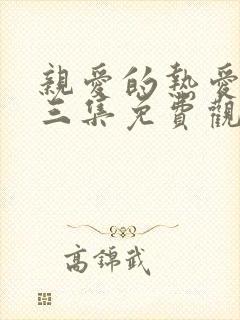 親愛的熱愛
三集免費觀
高錦武